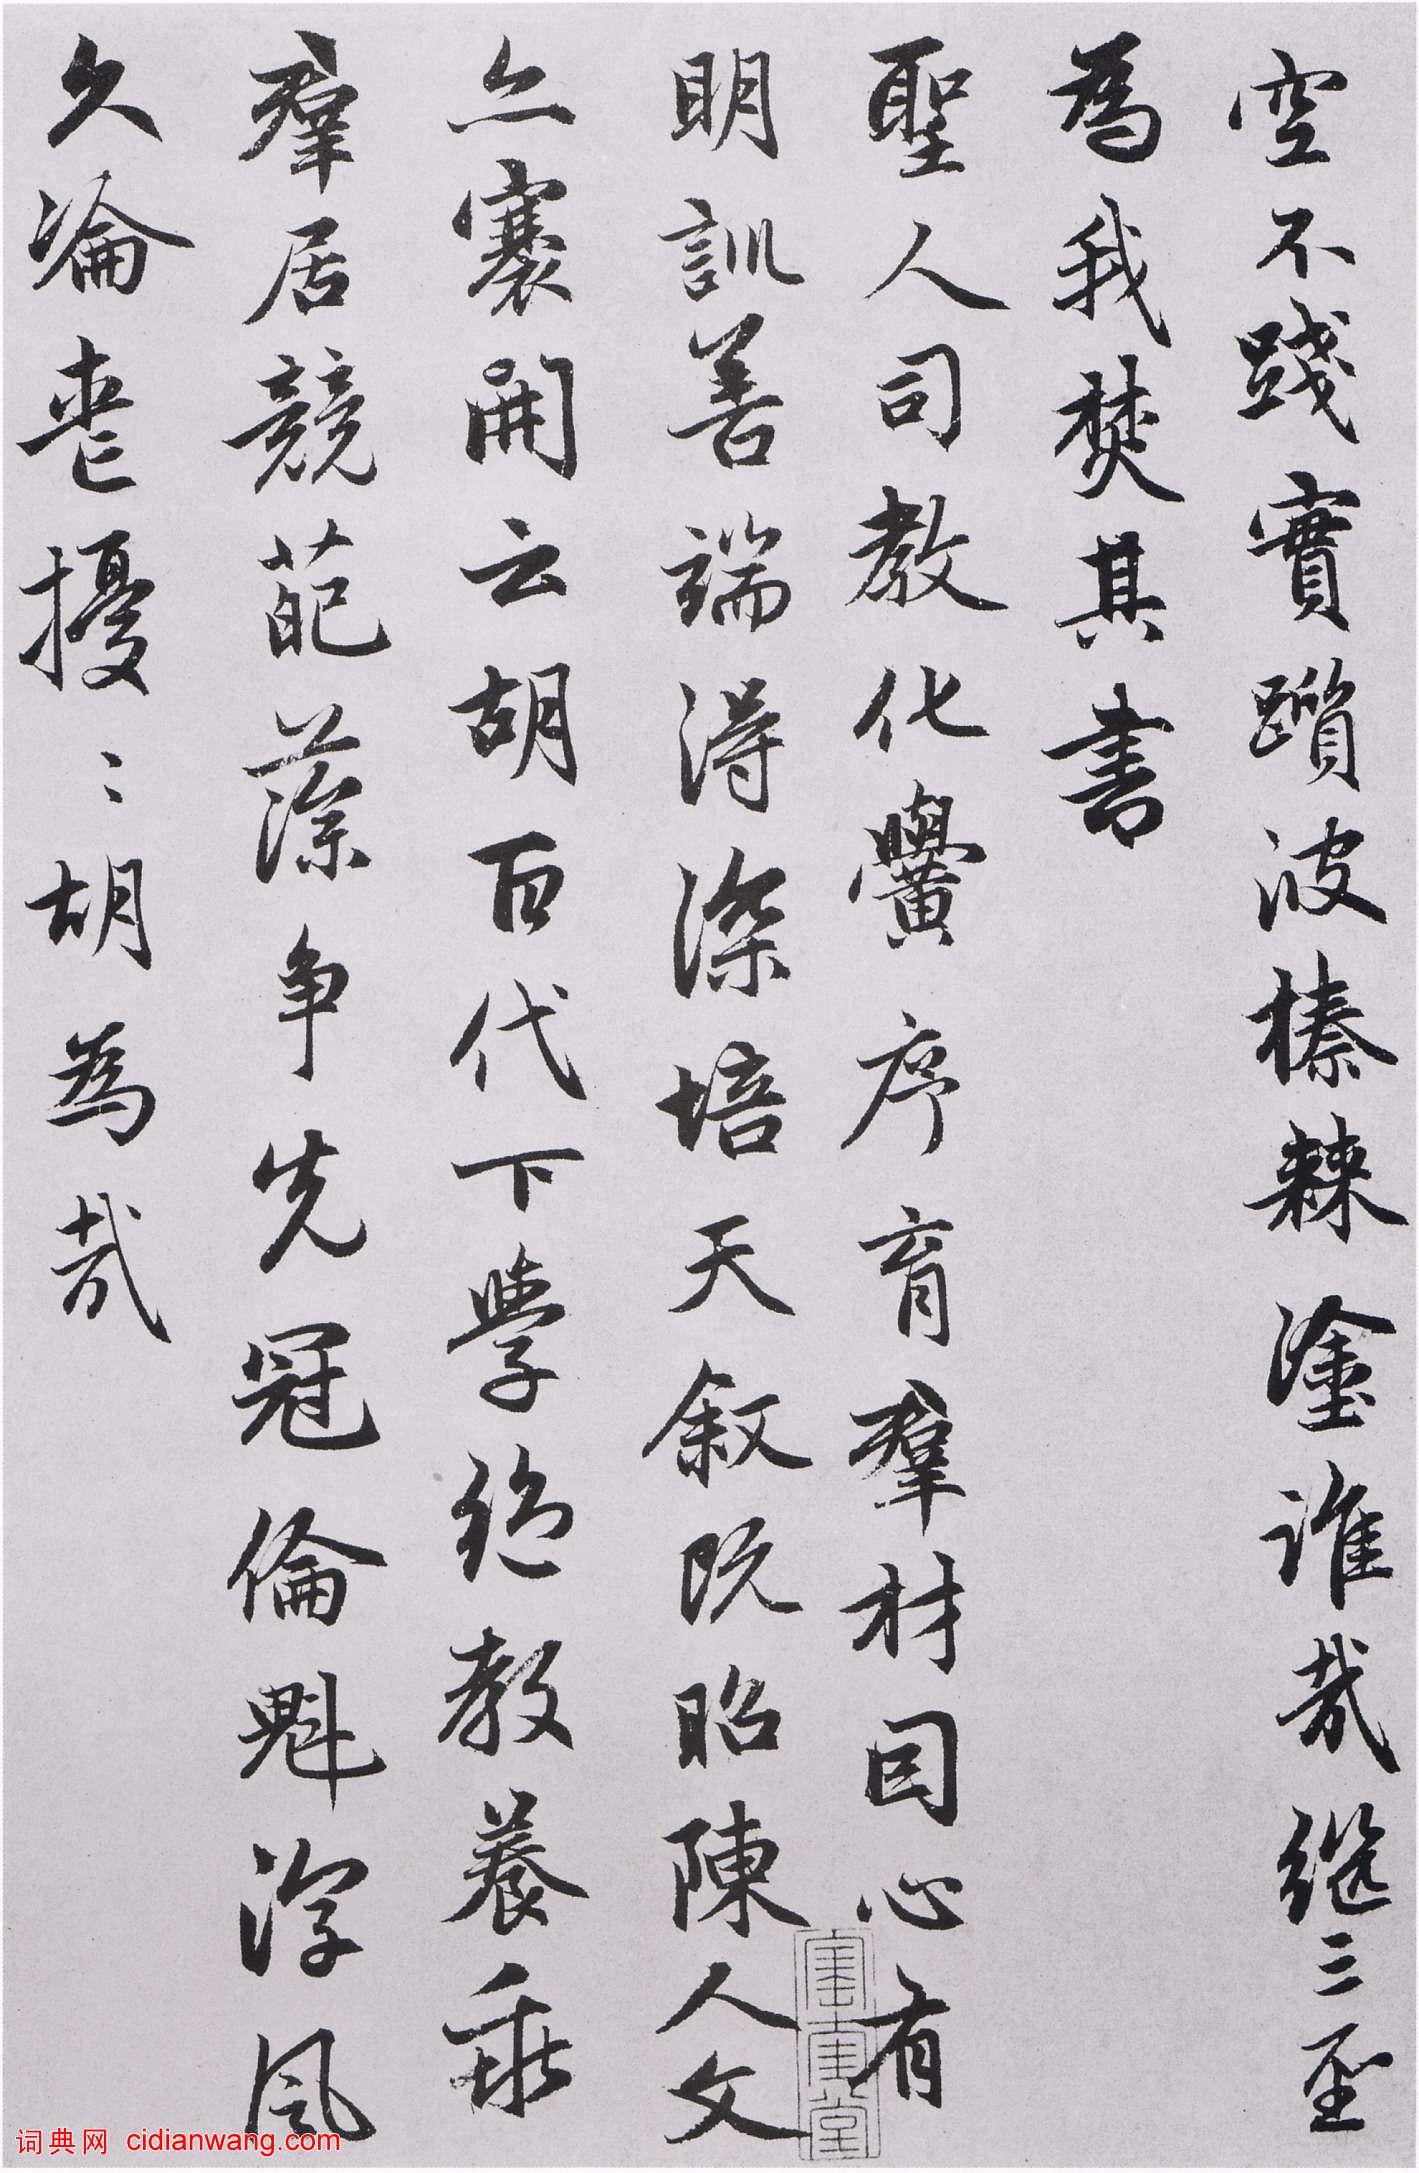 空不踐實躓彼榛棘塗誰哉继三聖
為我焚其書
聖人司教化黌序育羣材因心有
明訓善端得深培天叙既昭陳人文
亦褰開云胡百代下學絕教養乖
羣居競葩藻争先冠倫魁淳風
久淪喪擾〻胡為哉
词典网 cidianwang.com